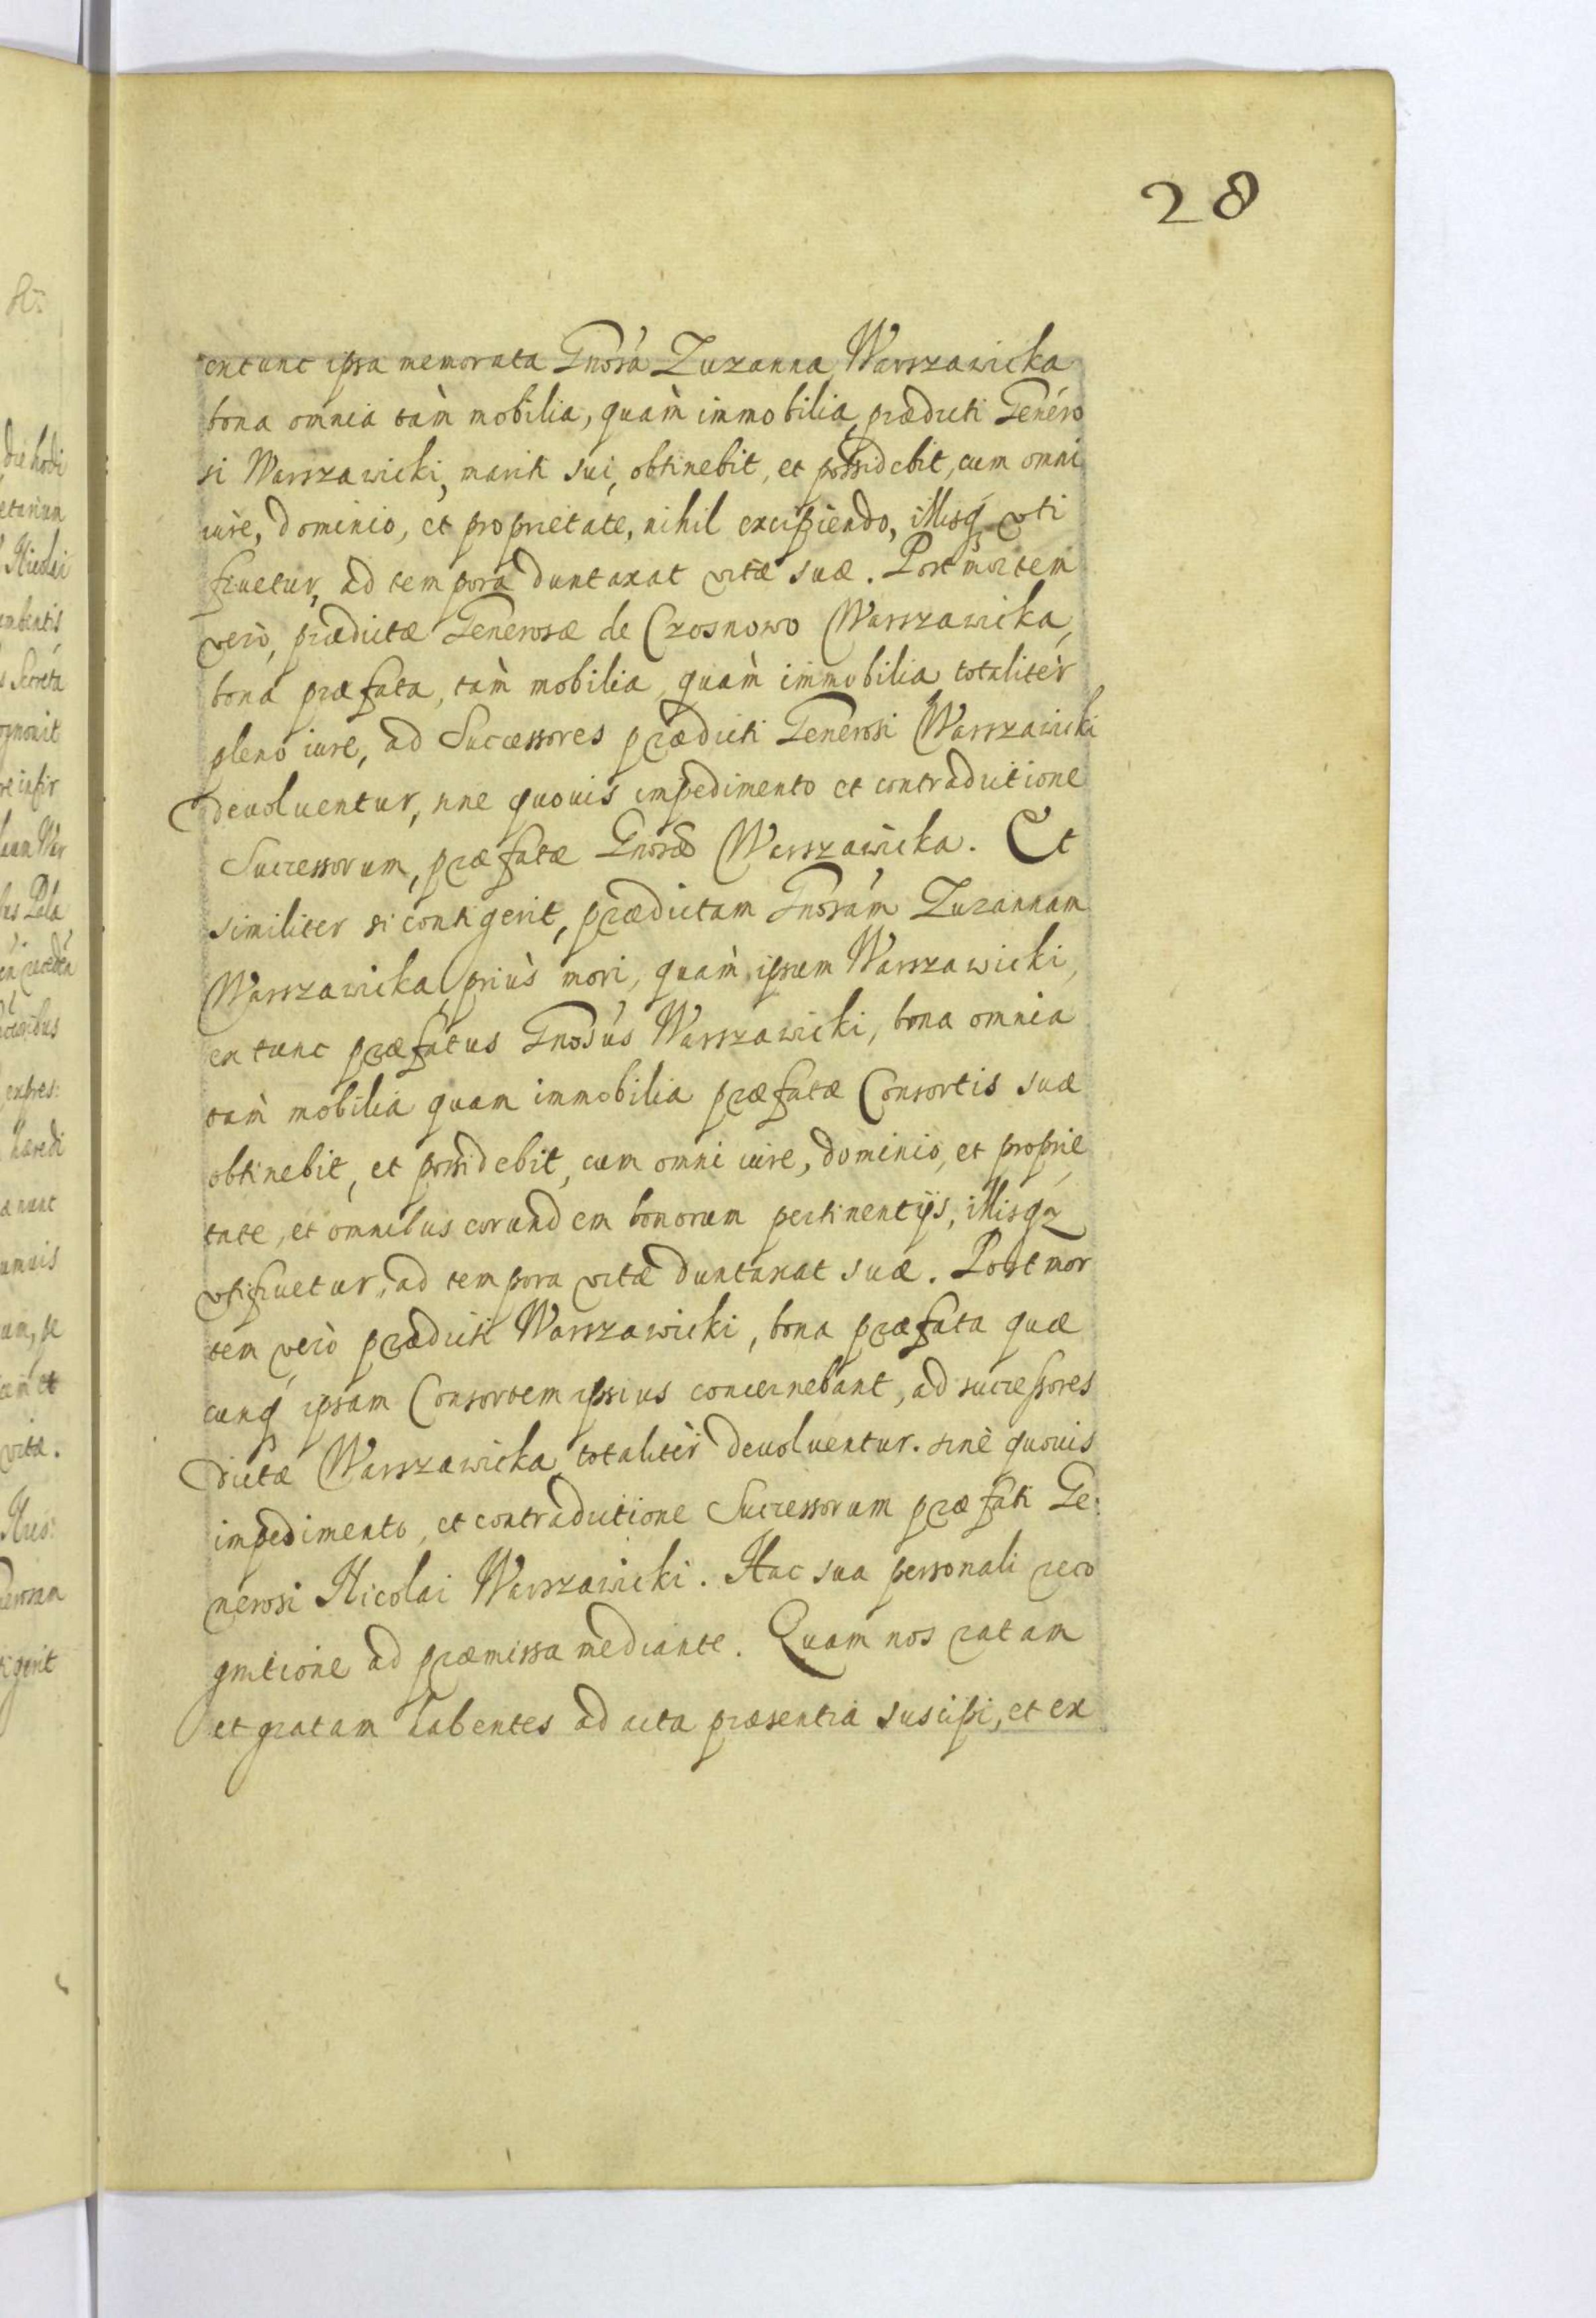 28
extunc ipsa memorata Gnosa Zuzanna Warszawicka
bona omnia tam̀ mobilia, quam̀ immobilia, prædicti Genero
si Warszawicki, mariti sui, obtinebit, et possidebit, cum omni
iure, dominio, et proprietate, nihil excipiendo, illisq́ vti
fruetur, ad tempora duntaxat vitæ suæ. Post mortem
verò, prædictæ Generosæ de Czosnowo Warszawicka,
bona præfata, tam̀ mobilia, quam̀ immobilia totalitèr
pleno iure, ad Successores prædicti Generosi Warszawicki
devoluentur, sine quouis impedimento et contradictione
Successorum, præfatæ Gnosæ Warszawicka. Et
similiter si contigerit, prædictam Gnosam Zuzannam
Warszawicka priùs mori, quam̀ ipsum Warszawicki,
ex tunc præfatus Gnosus Warszawicki, bona omnia
tam̀ mobilia quam immobilia præfatæ Consortis suæ
obtinebit, et possidebit, cum omni iure, dominio, et proprie
tate, et omnibus eorundem bonorum pertinentijs, illisqz
vtifruetur, ad tempora vitæ duntaxat suæ. Post mor
tem verò prædicti Warszawicki, bona præfata quæ
cunq́ ipsam Consortem ipsius concernebant, ad successores
dictæ Warszawicka totalitèr deuoluentur. sinè quouis
impedimento, et contradictione Successorum præfati Ge:
nerosi Nicolai Warszawicki. Hac sua personali reco
gnitione ad præmissa mediante. Quam nos ratam
et gratam habentes ad acta præsentia suscipi, et ex